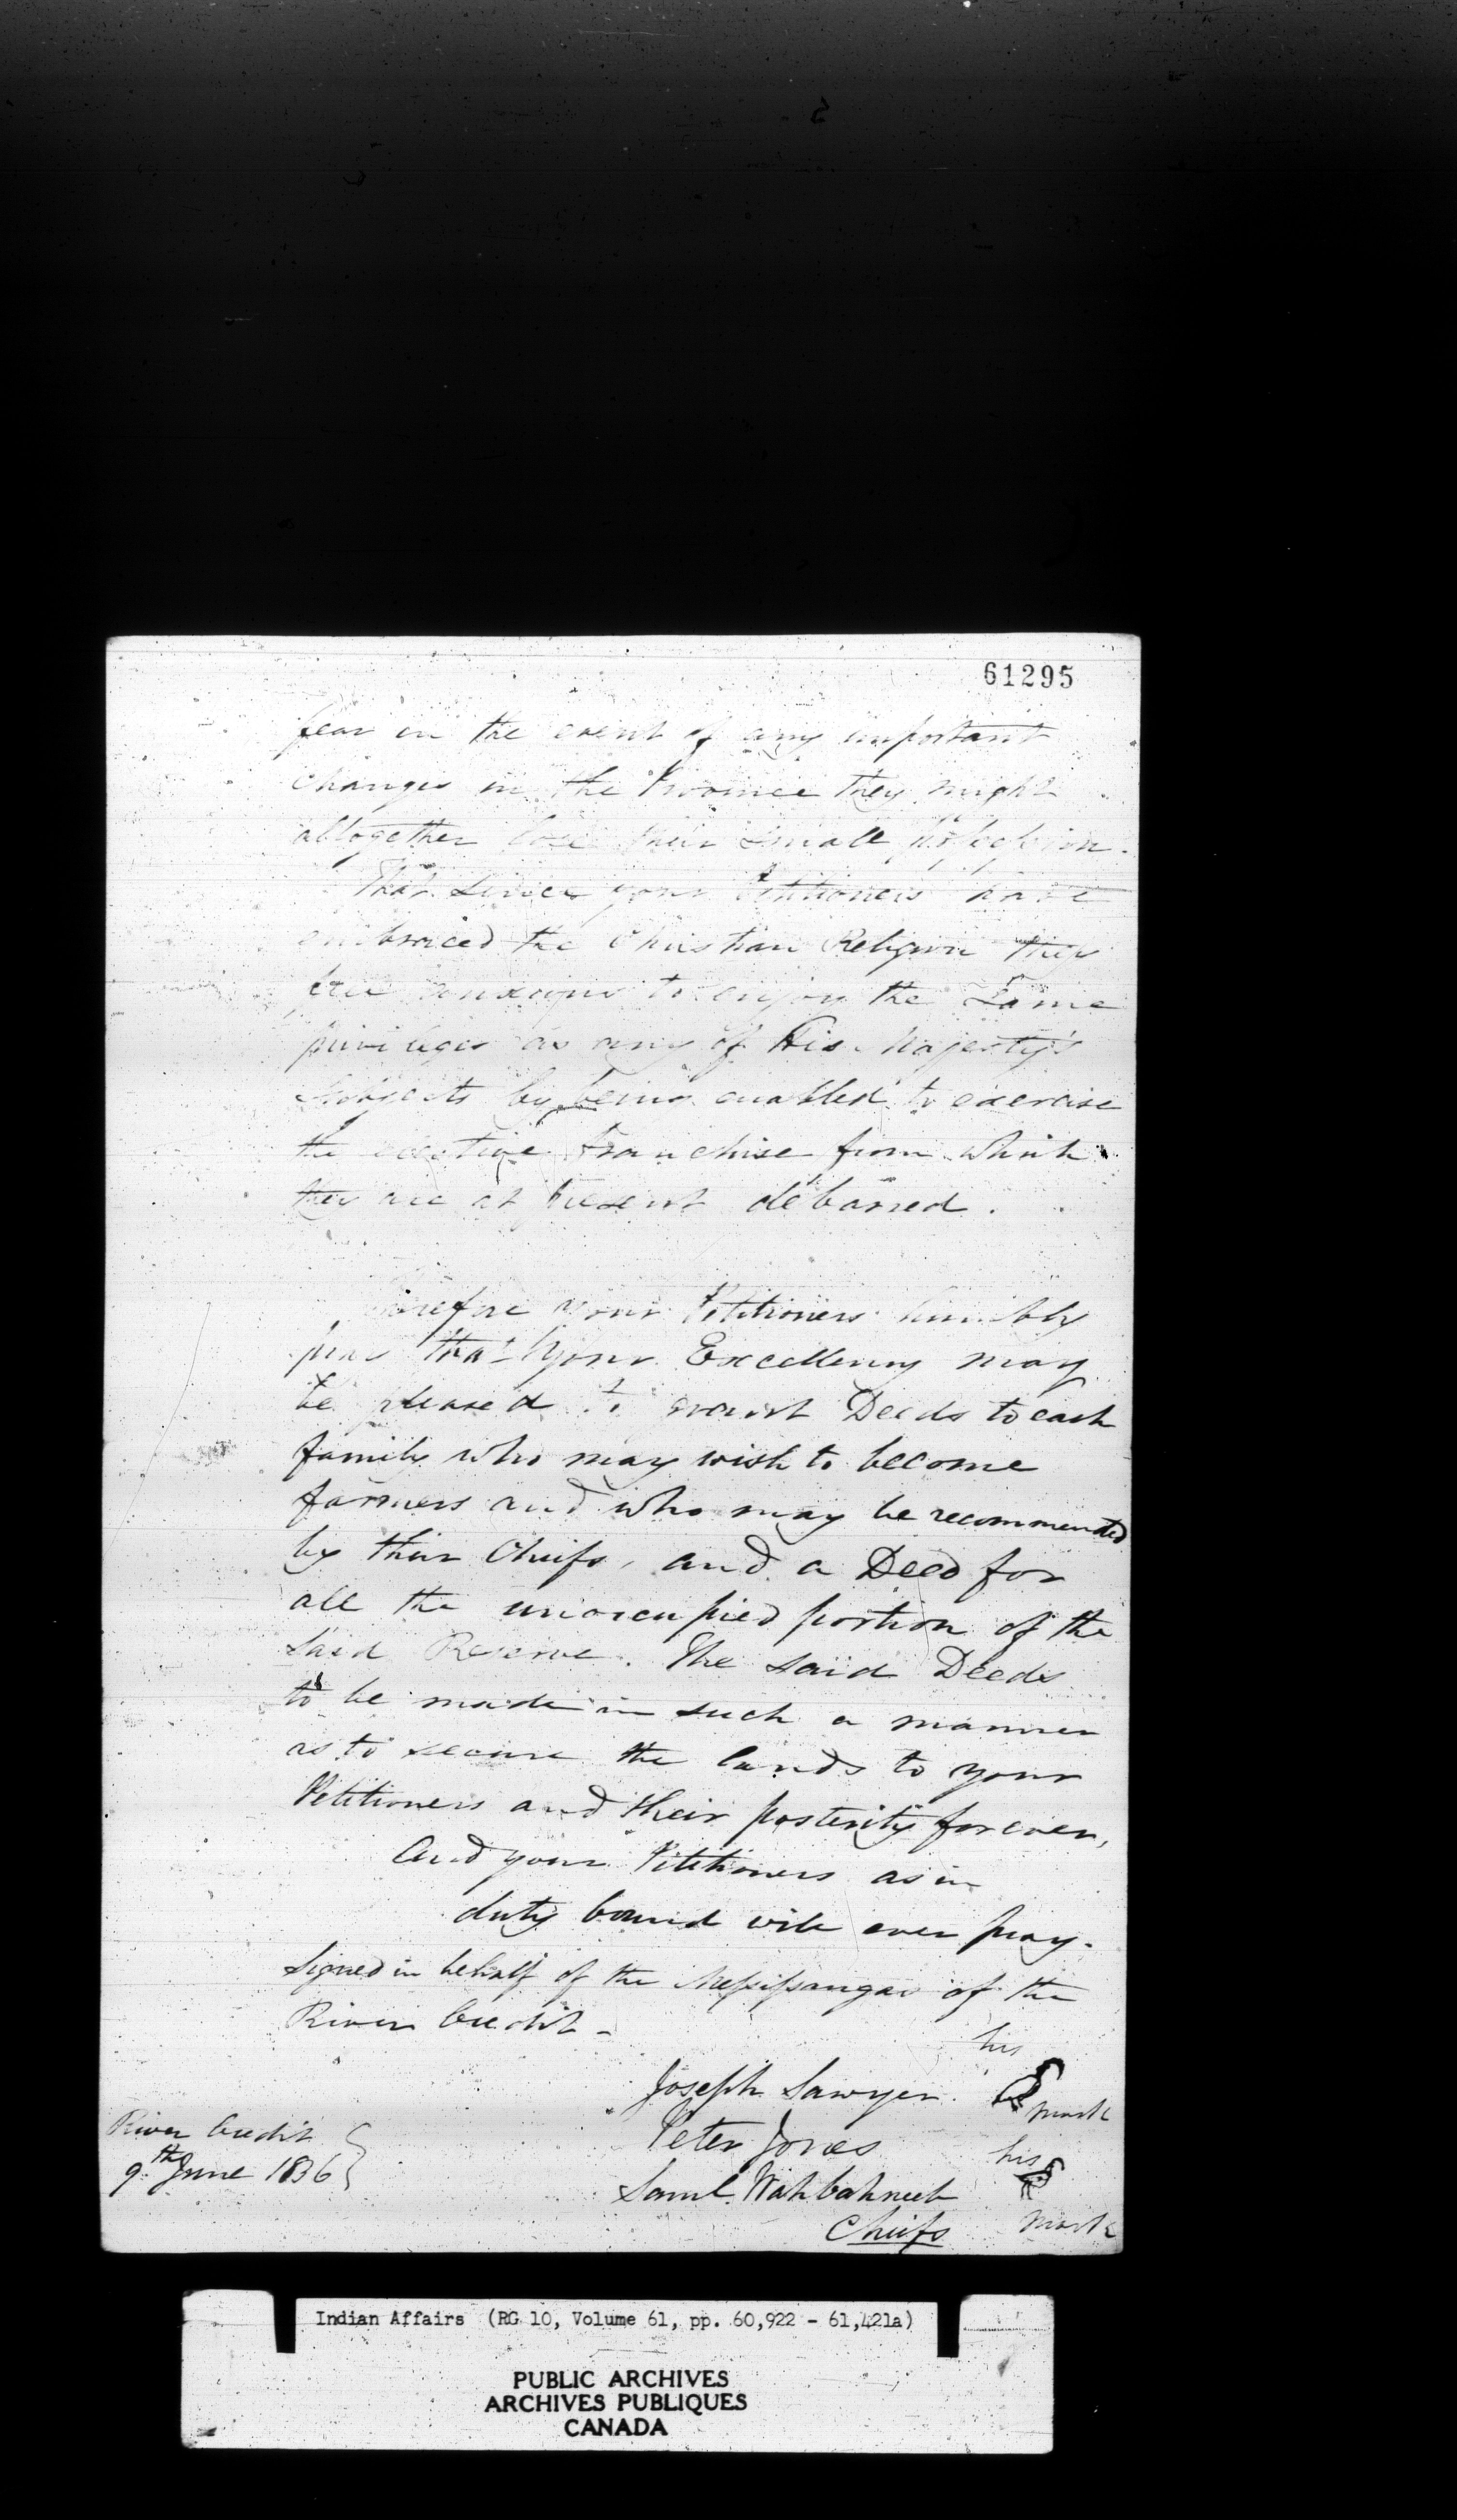 61295
fear in the event of any important
changes in the Province they might
altogether lose their small
That since your Petitioners have
embraced the Christian Religion they
feel anxious to enjoy the same
privileges as any of His Majesty's
Subjects by being enabled to exercise
the elective franchise from which
they are at present debarred.
Therefore your Petitioners humbly
pray that Your Excellency may
be pleased to grant Deeds to each
family who may wish to become
farmers and who may be recommended
by their Chiefs, and a Deed for
all the unoccupied portion of the
said Reserve. The said Deeds
to be made in such a manner
as to secure the lands to your
Petitioners and their posterity forever,
And your Petitioners as in
duty bound will ever pray.
Signed in behalf of the Messissaugas of the
River Credit -
his
Joseph Sawyer mark
Peter Jones
his
Saml. Wahbahneeb
Chiefs mark
River Credit
9th June 1836
Indian Affairs (RG 10, Volume 61, pp. 60,922 - 61,421a)
PUBLIC ARCHIVES
ARCHIVES PUBLIQUES
CANADA